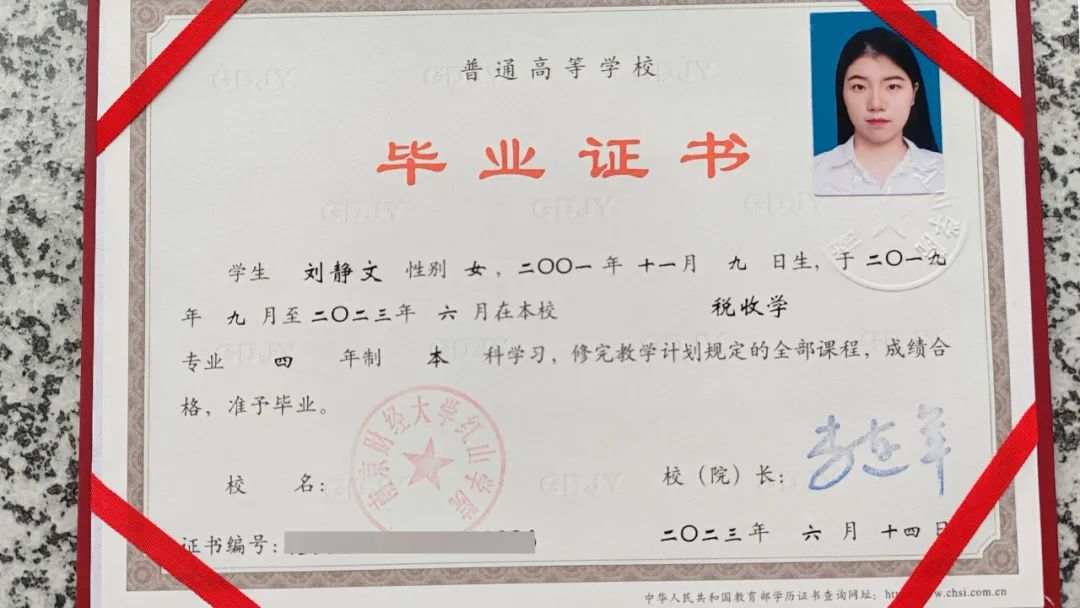 普通高等学校
毕业证书
学生 刘静文 性别 女，二〇〇一年 十一月 九 日生，于二〇一九
年 九 月至二〇二三年 六 月在本校 税收学
专业 四 年制 本 科学习，修完教学计划规定的全部课程，成绩合
格，准予毕业。
南京财经大学红山学院
校 名：
校（院）长：
证书编号：
二〇二三年 六 月 十四日
中华人民共和国教育部学历证书查询网址：http://www.chsi.com.cn